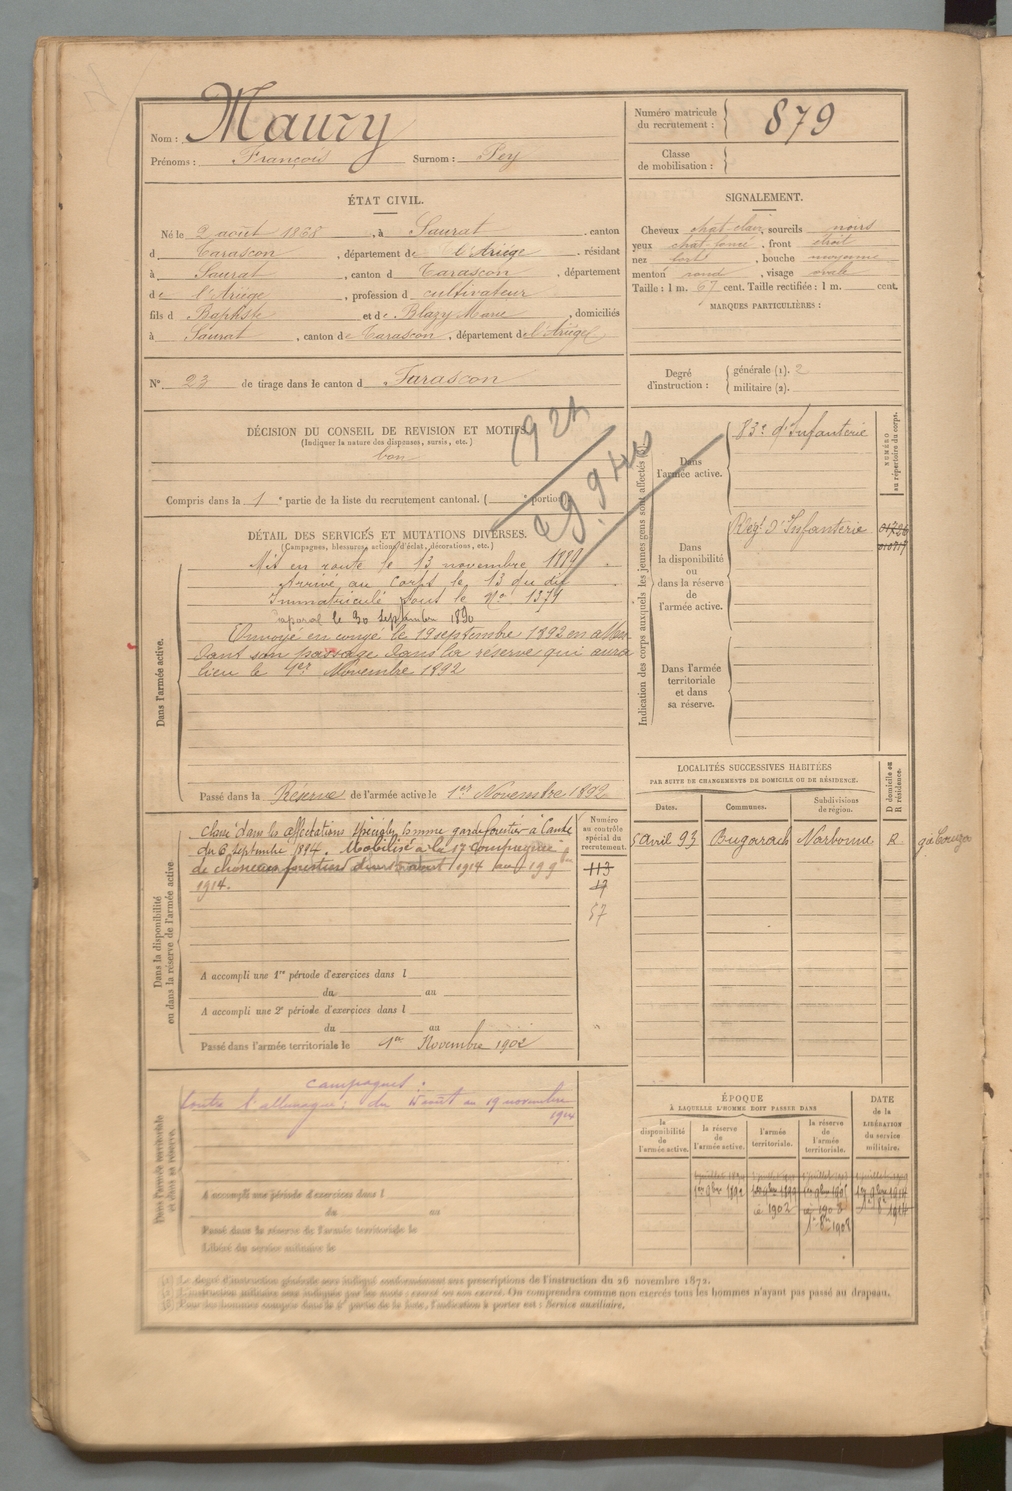 Nom : Maury
Prénoms : François Surnom : Pey
Numéro matricule du recrutement : 879
Classe de mobilisation :
ÉTAT CIVIL.
Né le 2 août 1868, à Saurat, canton
d Tarascon, département de l'Ariège, résidant
à Saurat, canton d Tarascon, département
de l'Ariège, profession d cultivateur
fils d Baptiste et de Blazy Marie, domiciliés
à Saurat, canton de Tarascon, département de l'Ariège
N° 23 de tirage dans le canton d Tarascon
SIGNALEMENT.
Cheveux chat clair, sourcils noirs
yeux chat foncé, front droit
nez fort, bouche moyenne
menton rond, visage ovale
Taille : 1 m. 67 cent. Taille rectifiée : 1 m. cent.
MARQUES PARTICULIÈRES :
Degré d'instruction : générale (1). 2
militaire (2).
DÉCISION DU CONSEIL DE REVISION ET MOTIFS.
(Indiquer la nature des dispenses, sursis, etc.)
bon
Compris dans la 1e partie de la liste du recrutement cantonal. ( e portion).
DÉTAIL DES SERVICES ET MUTATIONS DIVERSES.
(Campagnes, blessures, actions d'éclat, décorations, etc.)
Dans l'armée active.
Mis en route le 13 novembre 1889.
Arrivé au corps le 13 du dit
Immatriculé sous le N° 1374
Caporal le 30 septembre 1890
Envoyé en congé le 19 septembre 1892 en atten
dant son passage dans la réserve qui aura
lieu le 1er Novembre 1892
Passé dans la Réserve de l'armée active le 1er Novembre 1892
Indication des corps auxquels les jeunes gens sont affectés
NUMÉRO au répertoire du corps.
Dans l'armée active.
83e d'Infanterie
Dans la disponibilité ou dans la réserve de l'armée active.
Régt d'Infanterie
Dans l'armée territoriale et dans sa réserve.
Dans la disponibilité ou dans la réserve de l'armée active
Numéro au contrôle spécial du recrutement.
Classé dans les affectations spéciales comme garde forestier à
du 6 septembre 1894. Mobilisé à la 17 compagnie
de chasseurs forestiers 1914 au 19 9bre
1914.
113
19
57
A accompli une 1re période d'exercices dans l
du au
A accompli une 2e période d'exercices dans l
du au
Passé dans l'armée territoriale le 1er Novembre 1902
LOCALITÉS SUCCESSIVES HABITÉES
PAR SUITE DE CHANGEMENTS DE DOMICILE OU DE RÉSIDENCE.
D domicile ou R résidence.
Dates. Communes. Subdivisions de région.
5 avril 93 Bugarach Narbonne R
Dans l'armée territoriale et dans sa réserve.
Campagnes :
Contre l'allemagne : du août au 19 novembre
1914
A accompli une période d'exercices dans l
du au
Passé dans la réserve de l'armée territoriale le
Libéré du service militaire le
ÉPOQUE
À LAQUELLE L'HOMME DOIT PASSER DANS
la disponibilité de l'armée active.
la réserve de l'armée active.
l'armée territoriale.
la réserve de l'armée territoriale.
DATE de la LIBÉRATION du service militaire.
1er 9bre 1892
1er 9bre 1899
1902
1908
(1) Le degré d'instruction générale sera indiqué conformément aux prescriptions de l'instruction du 26 novembre 1872.
(2) L'instruction militaire sera indiquée par les mots : exercé ou non exercé. On comprendra comme non exercés tous les hommes n'ayant pas passé au drapeau.
(3) Pour les hommes compris dans la 4e partie de la liste, l'indication à porter est : Service auxiliaire.